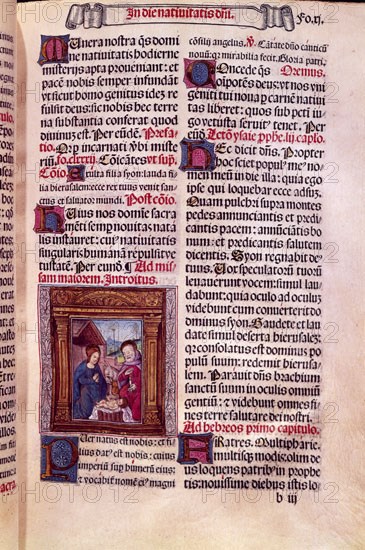 In die natiuitatis dñi.
Fo.ij.
Munera nostra q̃s domi
ne natiuitatis hodierne
misterijs apta proueniant: et
pacẽ nobis semper infundãt
vt sicut homo genitus idez re
fulsit deus: sic nobis hec terre
na substantia conferat quod
diuinuz est. Per eũdẽ. Prefa-
tio. Qr incarnati vbi miste
riũ. Cõicãtes vt sup̃.
Cõio. Exulta filia syon: lauda fi
lia hierusalem: ecce rex tuus venit san-
ctus et saluator mundi. Postcõio.
Huius nos domine sacra
mẽti semp nouitas nata
lis instauret: cui⁹ natiuitatis
singularis humanã repulit ve
tustatẽ. Per eundẽ. Ad mis
sam maiorem. Introitus.
Puer natus est nobis: et fi
lius dat⁹ est nobis: cuius
imperiũ sup humerũ eius:
et vocabit̃ nomẽ ei⁹ magni
cõsilij angelus. V. Cãtate dño canticũ
nouũ: q̃ mirabilia fecit. Gloria patri.
Oremus.
Concede q̃s
omnipotẽs deus: vt nos vni
geniti tui noua p carnẽ natiui
tas liberet: quos sub petiti iu
go vetusta seruit⁹ tenet. Per
eũd. Lectio ysaie pphe. lij caplo.
Hec dicit dñs. Propter
hoc sciet popul⁹ me⁹ no-
men meuʒ in die illa: quia ego
ipse qui loquebar ecce adsuʒ.
Quam pulchri supra montes
pedes annunciantis et predi-
cantis pacem: annunciãtis bo
num: et predicantis salutem
dicentis. Syon regnabit de⁹
tuus. Vox speculatorũ tuorũ
leuauerunt vocem: simul lau
dabunt: quia oculo ad oculuʒ
videbunt cum conuerterit do
minus syon. Gaudete et lau
date simul deserta hierusalez:
q̃ consolatus est dominus po
pulũ suum: redemit hierusa-
lem. Parauit dñs brachium
sanctũ suum in oculis omniũ
gentiũ: et videbunt omnes fi-
nes terre salutare dei nostri.
Ad hebreos primo capitulo.
Fratres. Multipharie
multisq̃ modis: olim de
us loquens patrib⁹ in prophe
tis: nouissime diebus istis lo
b iij